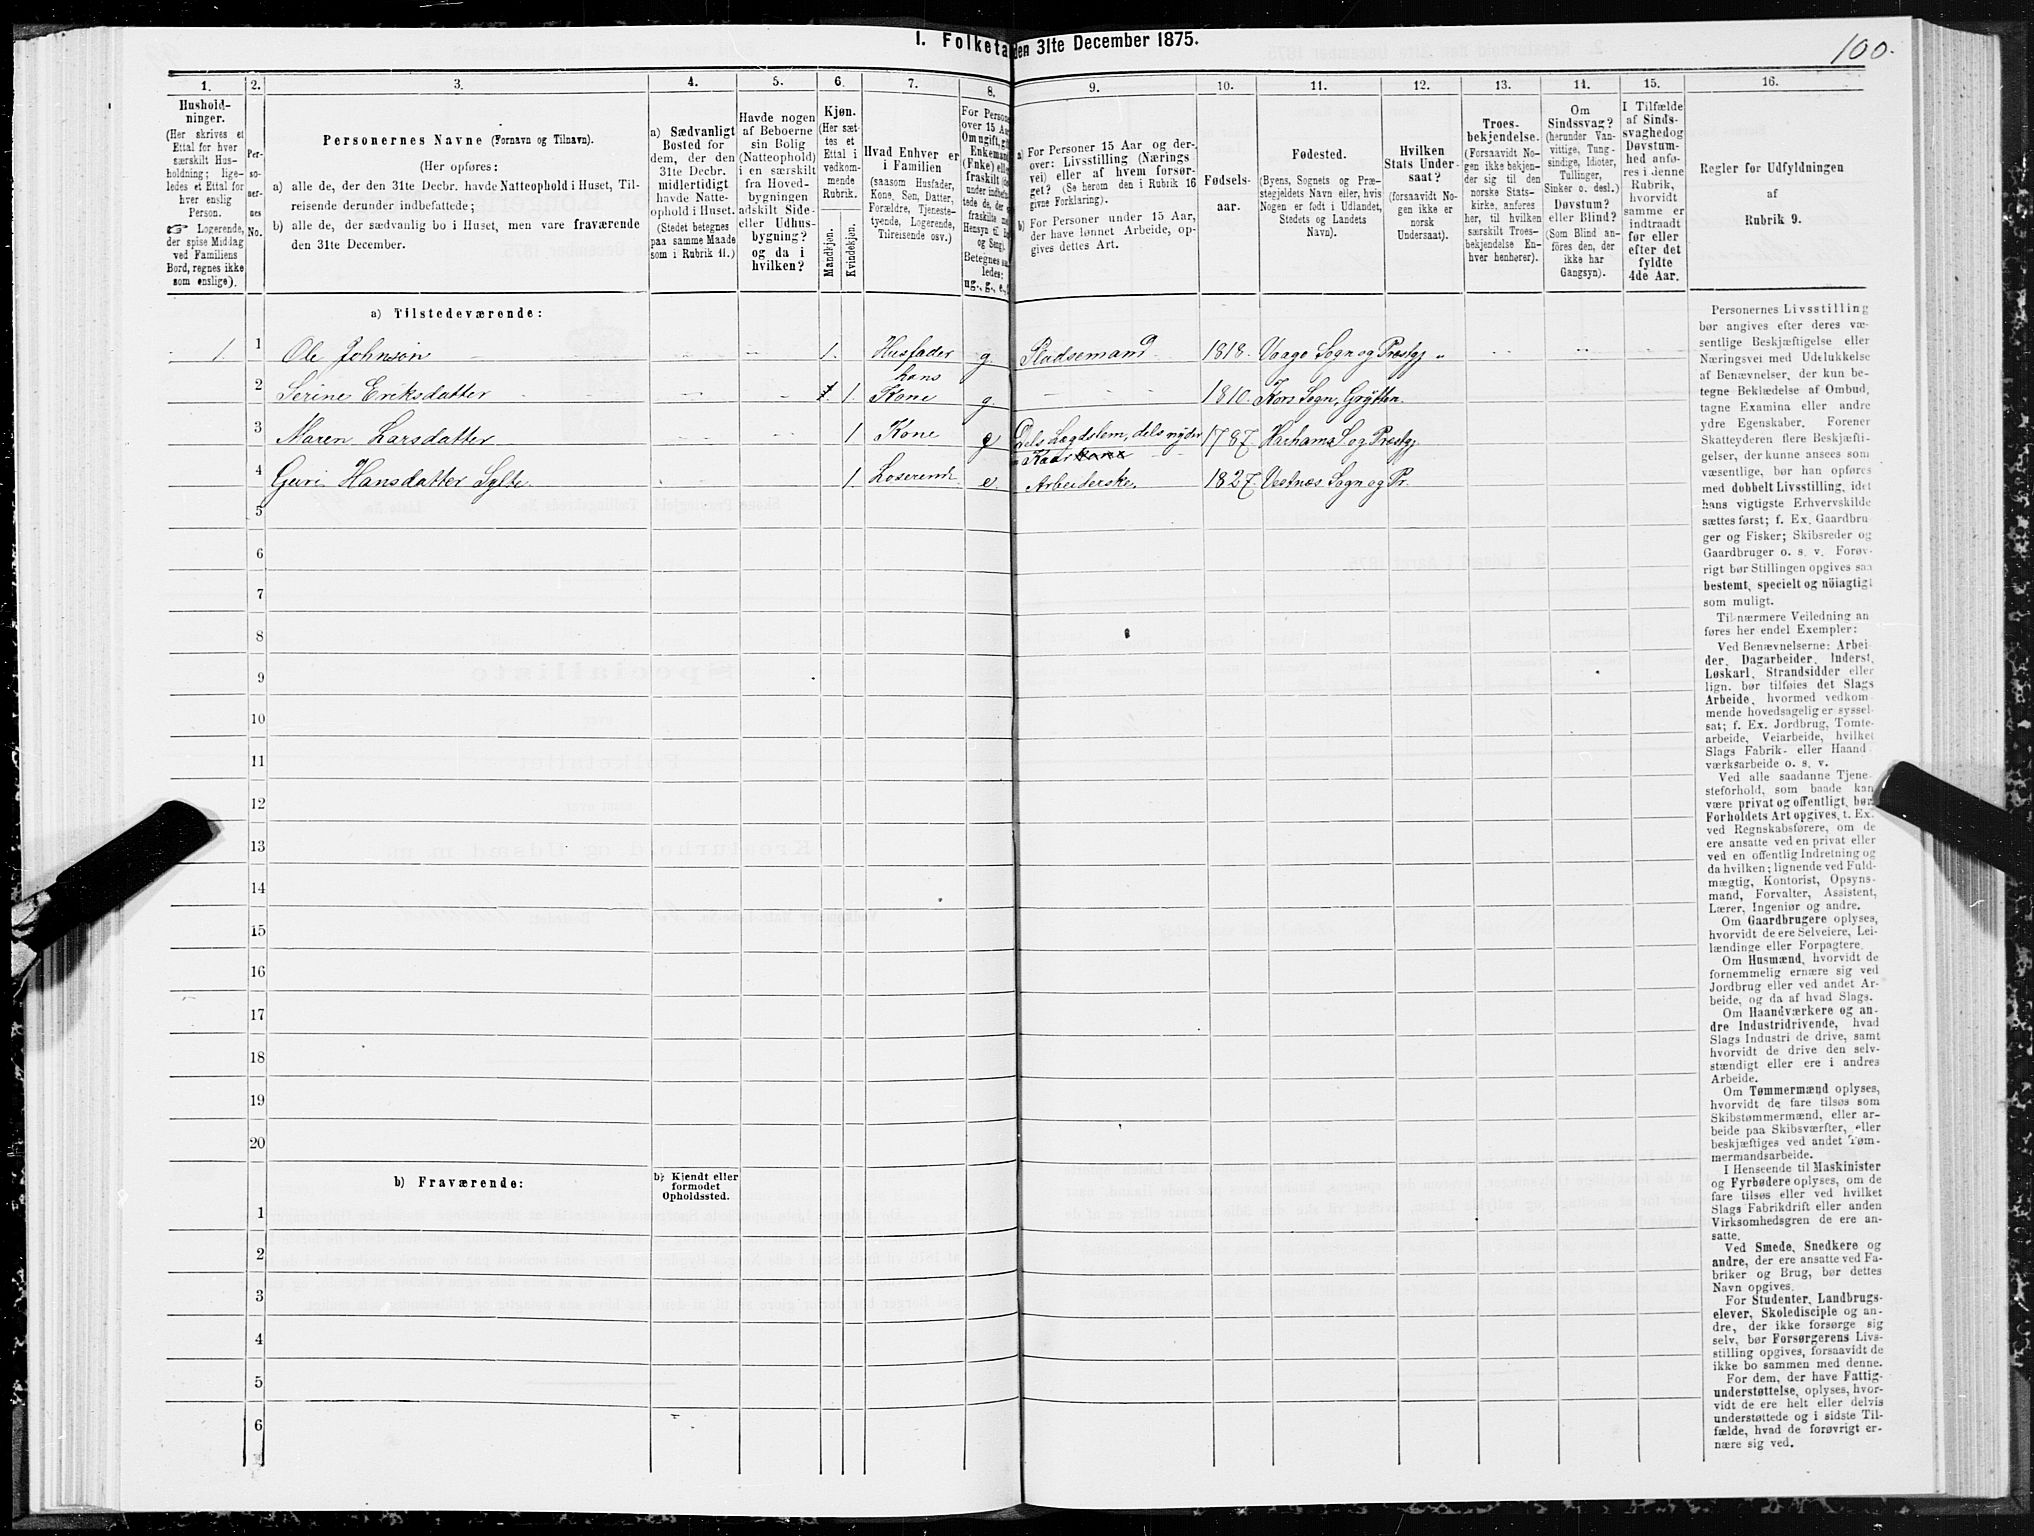 I. Folketal den 31te December 1875.
100.
1. 2. 3. 4. 5. 6. 7. 8. 9. 10. 11. 12. 13. 14. 15. 16.
Hushold-
ninger.
(Her skrives et
Ettal for hver
særskilt Hus-
holdning; lige-
ledes et Ettal for
hver enslig
Person.
☞ Logerende,
der spise Middag
ved Familiens
Bord, regnes ikke
som enslige).
Per-
so-
ner-
nes
No.
Personernes Navne (Fornavn og Tilnavn).
(Her opføres:
a) alle de, der den 31te Decbr. havde Natteophold i Huset, Til-
reisende derunder indbefattede;
b) alle de, der sædvanlig bo i Huset, men vare fraværende
den 31te December.
a) Sædvanligt
Bosted for
dem, der den
31te Decbr.
midlertidigt
havde Natte-
ophold i Huset.
(Stedet betegnes
paa samme Maade
som i Rubrik 11.)
Havde nogen
af Beboerne
sin Bolig
(Natteophold)
i en særskilt
fra Hoved-
bygningen
adskilt Side-
eller Udhus-
bygning?
og da i
hvilken?
Kjøn.
(Her sæt-
tes et
Ettal i
vedkom-
mende
Rubrik.
Mandkjøn.
Kvindekjøn.
Hvad Enhver er
i Familien
(saasom Husfader,
Kone, Søn, Datter,
Forældre, Tjeneste-
tyende, Logerende,
Tilreisende osv.)
For Persone
over 15 Aa
Om ugift, gi
Enkemand
(Enke) elle
fraskilt (de
under indbefa
tede de, der e
fraskilte me
Hensyn til Bo
og Seng).
Betegnes saa
ledes:
ug., g., e.,
a) For Personer 15 Aar og der-
over: Livsstilling (Nærings
vei) eller af hvem forsør-
get? (Se herom den i Rubrik 16
givne Forklaring.)
b) For Personer under 15 Aar,
der have lønnet Arbeide, op-
gives dettes Art.
Fødsels-
aar.
Fødested.
(Byens, Sognets og Præ-
stegjeldets Navn eller, hvis
Nogen er født i Udlandet,
Stedets og Landets
Navn).
Hvilken
Stats Under-
saat?
(forsaavidt No-
gen ikke er
norsk
Undersaat).
Troes-
bekjendelse.
(Forsaavidt No-
gen ikke bekjen-
der sig til den
norske Stats-
kirke, anføres
her, til hvilken
særskilt Troes-
bekjendelse En-
hver henhører).
Om
Sindssvag?
(herunder Van-
vittige, Tung-
sindige, Idioter,
Tullinger,
Sinker o. desl.)
Døvstum?
eller Blind?
(Som Blind an-
føres den, der
ikke har
Gangsyn).
I Tilfælde
af Sinds-
svaghed og
Døvstum-
hed anfø-
res i denne
Rubrik,
hvorvidt
samme er
indtraadt
før eller
efter det
fyldte
4de Aar.
Regler for Udfyldningen
af
Rubrik 9.
a) Tilstedeværende:
1. 1 Ole Johnson 1. Husfader g. Pladsemand 1818. Vaage Sogn og Præstgj
2 Serine Eriksdatter 1. hans Kone g. 1810. Kors Sogn, Grytten.
3 Maren Larsdatter 1 Kone e Dels Lægdslem, dels nyder Kaar 1787 Harhams S. og Præstgj
4 Guri Hansdatter Sylte 1. Loserende e. Arbeiderske. 1827 Vestnes Sogn og Pr.
5
6
7
8
9
10
11
12
13
14
15
16
17
18
19
20
b) Fraværende:
b) Kjendt eller
formodet
Opholdssted.
1
2
3
4
5
6
Personernes Livsstilling
bør angives efter deres væ-
sentlige Beskjæftigelse eller
Næringsvei med Udelukkelse
af Benævnelser, der kun be-
tegne Beklædelse af Ombud,
tagne Examina eller andre
ydre Egenskaber. Forener
Skatteyderen flere Beskjæfti-
gelser, der kunne ansees som
væsentlige, bør han opføres
med dobbelt Livsstilling, idet
hans vigtigste Erhvervskilde
sættes først; f. Ex. Gaardbru
ger og Fisker; Skibsreder og
Gaardbruger o. s. v. Forøv-
rigt bør Stillingen opgives saa
bestemt, specielt og nöiagtigt
som muligt.
Til nærmere Veiledning an
føres her endel Exempler:
Ved Benævnelserne: Arbei-
der, Dagarbeider, Inderst,
Løskarl, Strandsidder eller
lign. bør tilføies det Slags
Arbeide, hvormed vedkom-
mende hovedsagelig er syssel-
sat; f. Ex. Jordbrug, Tomte-
arbeide, Veiarbeide, hvilket
Slags Fabrik- eller Haand
værksarbeide o. s. v.
Ved alle saadanne Tjene-
steforhold, som baade kan
være privat og offentligt, bør
Forholdets Art opgives, t. Ex.
ved Regnskabsførere, om de
ere ansatte ved en privat eller
ved en offentlig Indretning og
da hvilken; lignende ved Fuld-
mægtig, Kontorist, Opsyns-
mand, Forvalter, Assistent,
Lærer, Ingeniør og andre.
Om Gaardbrugere oplyses,
hvorvidt de ere Selveiere, Lei-
lændinge eller Forpagtere.
Om Husmænd, hvorvidt de
fornemmelig ernære sig ved
Jordbrug eller ved andet Ar-
beide, og da af hvad Slags.
Om Haandværkere og an-
dre Industridrivende, hvad
Slags Industri de drive, samt
hvorvidt de drive den selv-
stændigt eller ere i andres
Arbeide.
Om Tømmermænd oplyses,
hvorvidt de fare tilsøs som
Skibstømmermænd, eller ar-
beide paa Skibsværfter, eller
beskjæftiges ved andet Tøm-
mermandsarbeide.
I Henseende til Maskinister
og Fyrbødere oplyses, om de
fare tilsøs eller ved hvilket
Slags Fabrikdrift eller anden
Virksomhedsgren de ere an-
satte.
Ved Smede, Snedkere og
andre, der ere ansatte ved Fa-
briker og Brug, bør dettes
Navn opgives.
For Studenter, Landbrugs-
elever, Skoledisciple og an-
dre, der ikke forsørge sig
selv, bør Forsørgerens Livs-
stilling opgives, forsaavidt de
ikke bo sammen med denne.
For dem, der have Fattig-
understøttelse, oplyses, hvor-
vidt de ere helt eller delvis
understøttede og i sidste Til-
fælde, hvad de forøvrigt er-
nære sig ved.